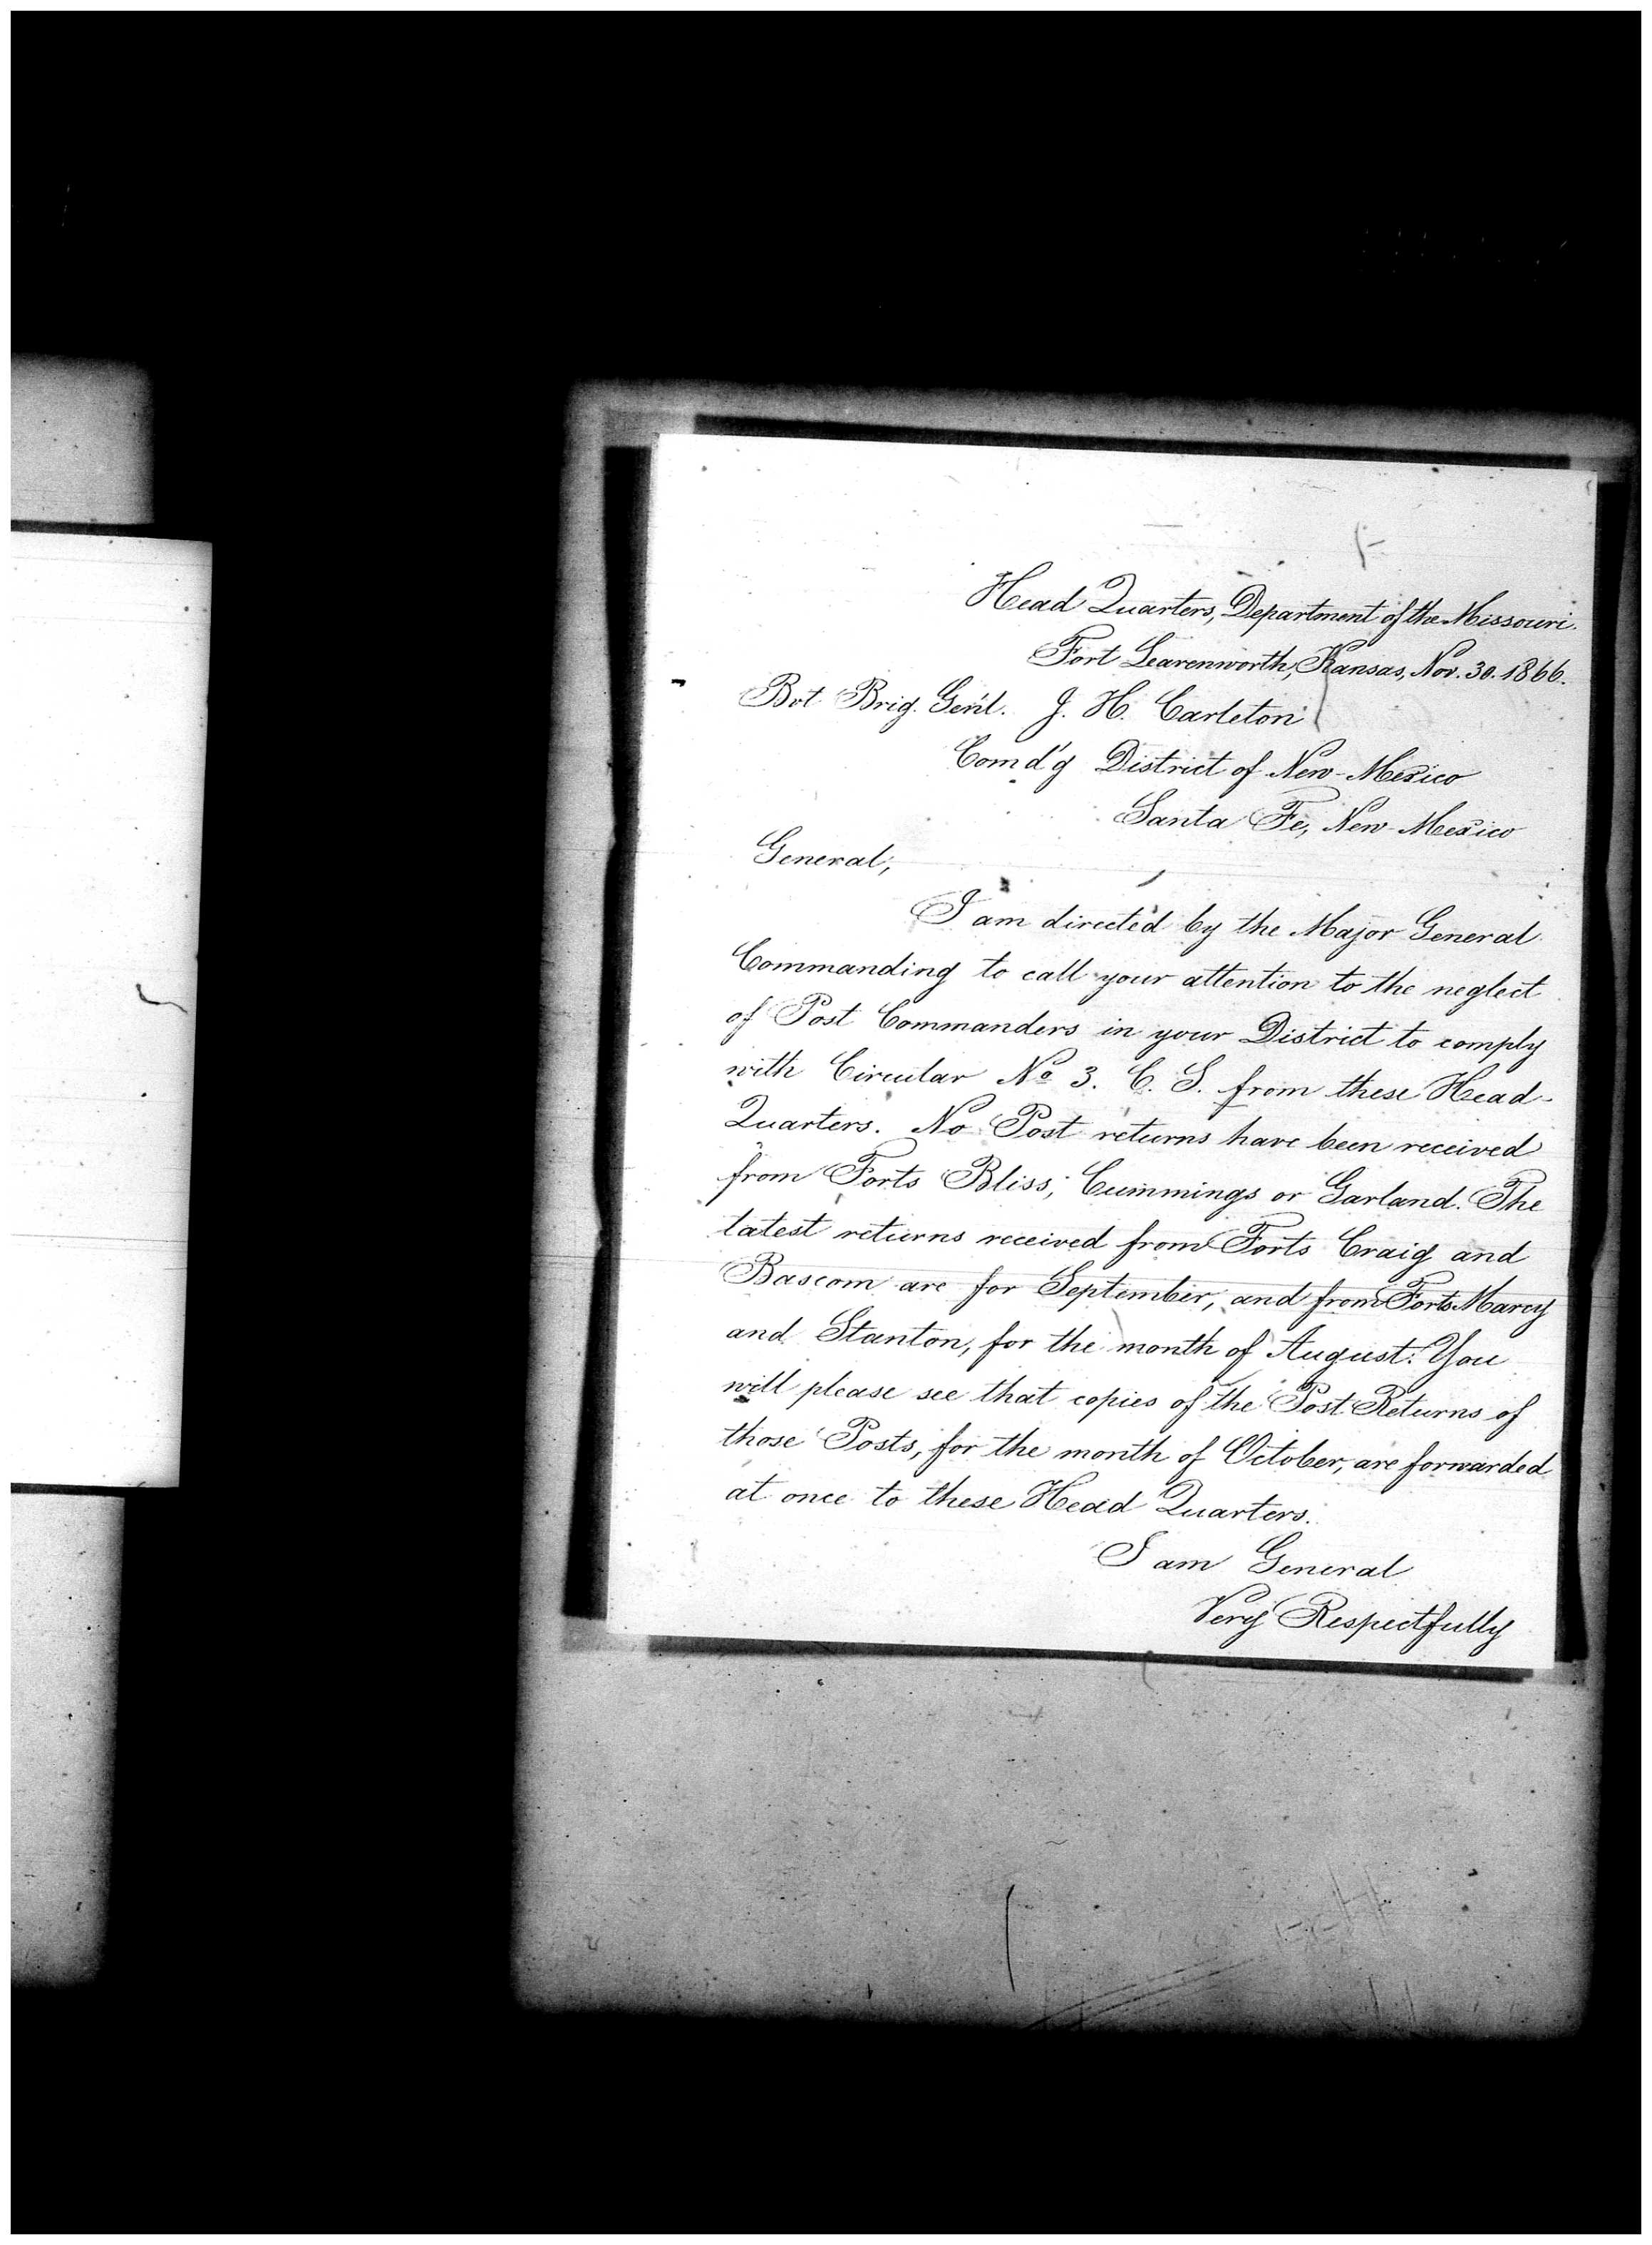 Head Quarters, Department of the Missouri.
Fort Leavenworth, Kansas, Nov. 30. 1866.
Bvt Brig. Gen'l. J. H. Carleton
Comd'g District of New-Mexico
Santa Fe, New-Mexico
General,
I am directed by the Major General
Commanding to call your attention to the neglect
of Post Commanders in your District to comply
with Circular No 3. C. S. from these Head-
Quarters. No Post returns have been received
from Forts Bliss, Cummings or Garland. The
latest returns received from Forts Craig and
Bascom are for September, and from Forts Marcy
and Stanton, for the month of August. You
will please see that copies of the Post Returns of
those Posts, for the month of October, are forwarded
at once to these Head Quarters.
I am General
Very Respectfully